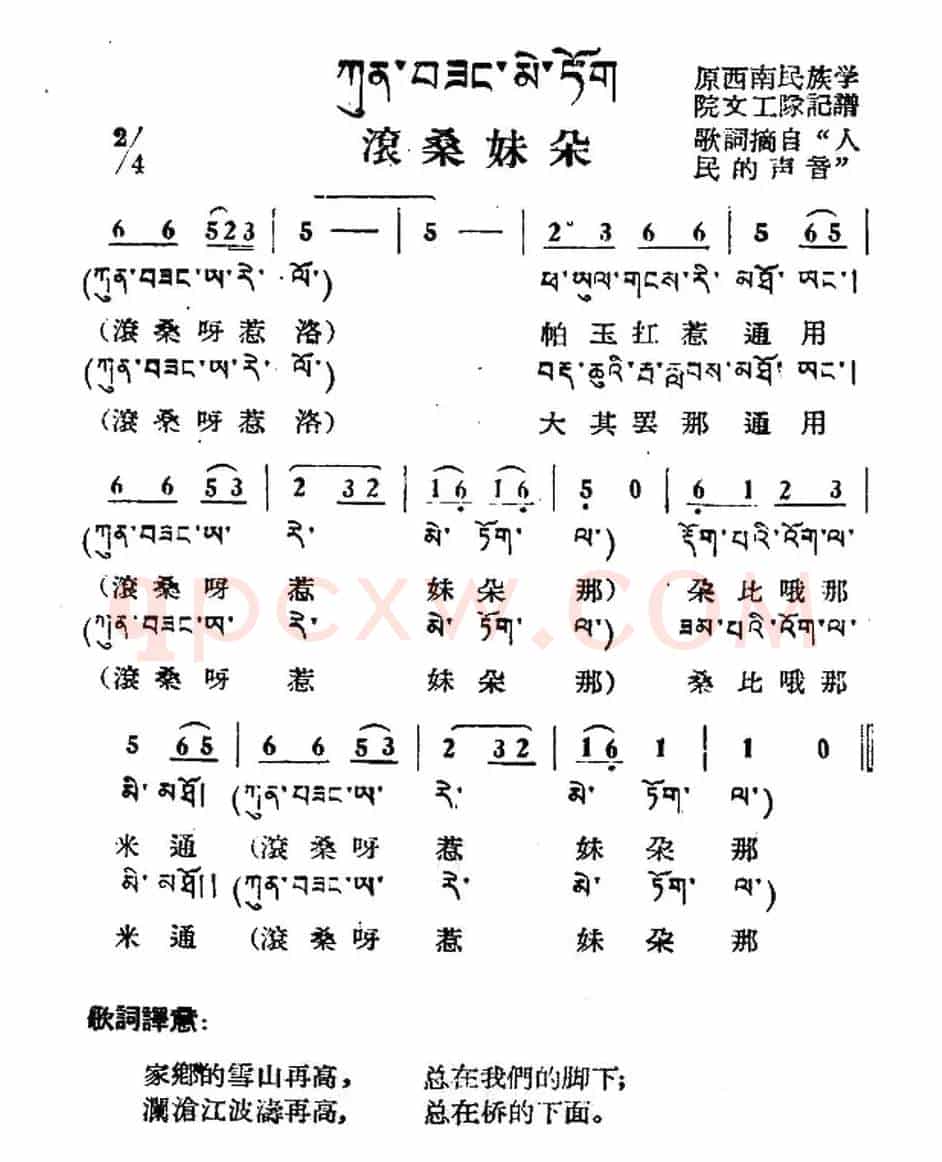 ཀུན་བཟང་མེ་ཏོག
滾桑妹朵
原西南民族学
院文工隊記譜
歌詞摘自“人
民的声音”
2/4
6 6 523 | 5 — | 5 — | 2 3 6 6 | 5 65 |
(ཀུན་བཟང་ཨ་རེ་ ལོ་) ཕ་ཡུལ་གངས་རི་ མཐོ་ ཡང་།
(滾桑呀惹洛) 帕玉扛惹通用
(ཀུན་བཟང་ཨ་རེ་ ལོ་) མཐོ་ ཡང་།
(滾桑呀惹洛) 大其罢那通用
6 6 53 | 2 32 | 16 16 | 5 0 | 6 1 2 3 |
(ཀུན་བཟང་ཨ་ རེ་ མེ་ ཏོག་ ལ་) རྡོག་པའི་འོག་ལ་
(滾桑呀 惹 妹朵 那) 朶比哦那
(ཀུན་བཟང་ཨ་ རེ་ མེ་ ཏོག་ ལ་) ཟམ་པའི་འོག་ལ་
(滾桑呀 惹 妹朶 那) 桑比哦那
5 65 | 6 6 53 | 2 32 | 16 1 | 1 0 ‖
མི་ མཐོ། (ཀུན་བཟང་ཨ་ རེ་ མེ་ ཏོག་ ལ་)
米通 (滾桑呀 惹 妹朶 那
མི་ མཐོ།། (ཀུན་བཟང་ཨ་ རེ་ མེ་ ཏོག་ ལ་)
米通 (滾桑呀 惹 妹朶 那
qpcxw.com
歌詞譯意:
家鄉的雪山再高, 总在我們的脚下;
瀾滄江波濤再高, 总在桥的下面。